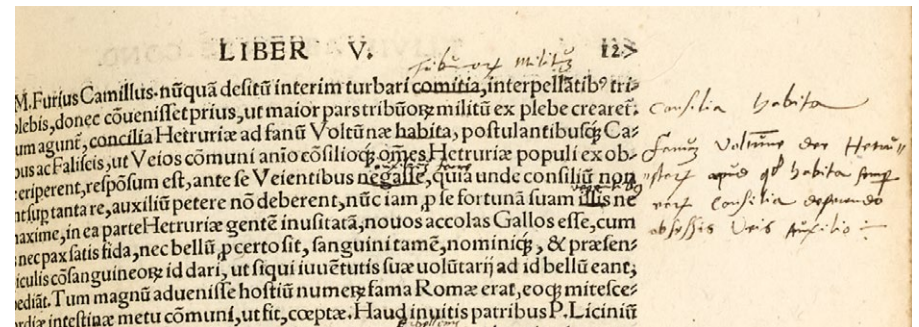 LIBER V.
tribunorꝝ militũ
M. Furius Camillus. nũquã desitũ interim turbari comitia, interpellãtibꝰ tri-
plebis, donec cõuenisset prius, ut maior pars tribũorꝝ militũ ex plebe crearet̃.
um agunt̃, concilia Hetruriæ ad fanũ Voltũnæ habita, postulantibusq̃ Ca-
pus ac Faliscis, ut Veios cõmuni anio cõsilioq̃ oẽs Hetruriæ populi ex ob-
e eriperent, respõsum est, ante se Veientibus negasse, quia unde consiliũ non
nt sup tanta re, auxiliũ petere nõ deberent, nũc iam, p se fortunã suam illis ne
maxime, in ea parte Hetruriæ gentẽ inusitatã, nouos accolas Gallos esse, cum
s nec pax satis fida, nec bellũ, p certo sit, sanguini tamẽ, nominiq̃, & præsen-
iculis cõsanguineorꝝ id dari, ut siqui iuuẽtutis suæ uolũtarij ad id bellũ eant,
pediãt. Tum magnũ aduenisse hostiũ numerꝝ fama Romæ erat, eoq̃ mitesce-
ordiæ intestinæ metu cõmuni, ut fit, cœptæ. Haud inuitis patribus P. Liciniũ
Consilia habita
fanuʒ Voltumne der Hetru-
apud habita
Consilia
obsessis Veis Auxilio